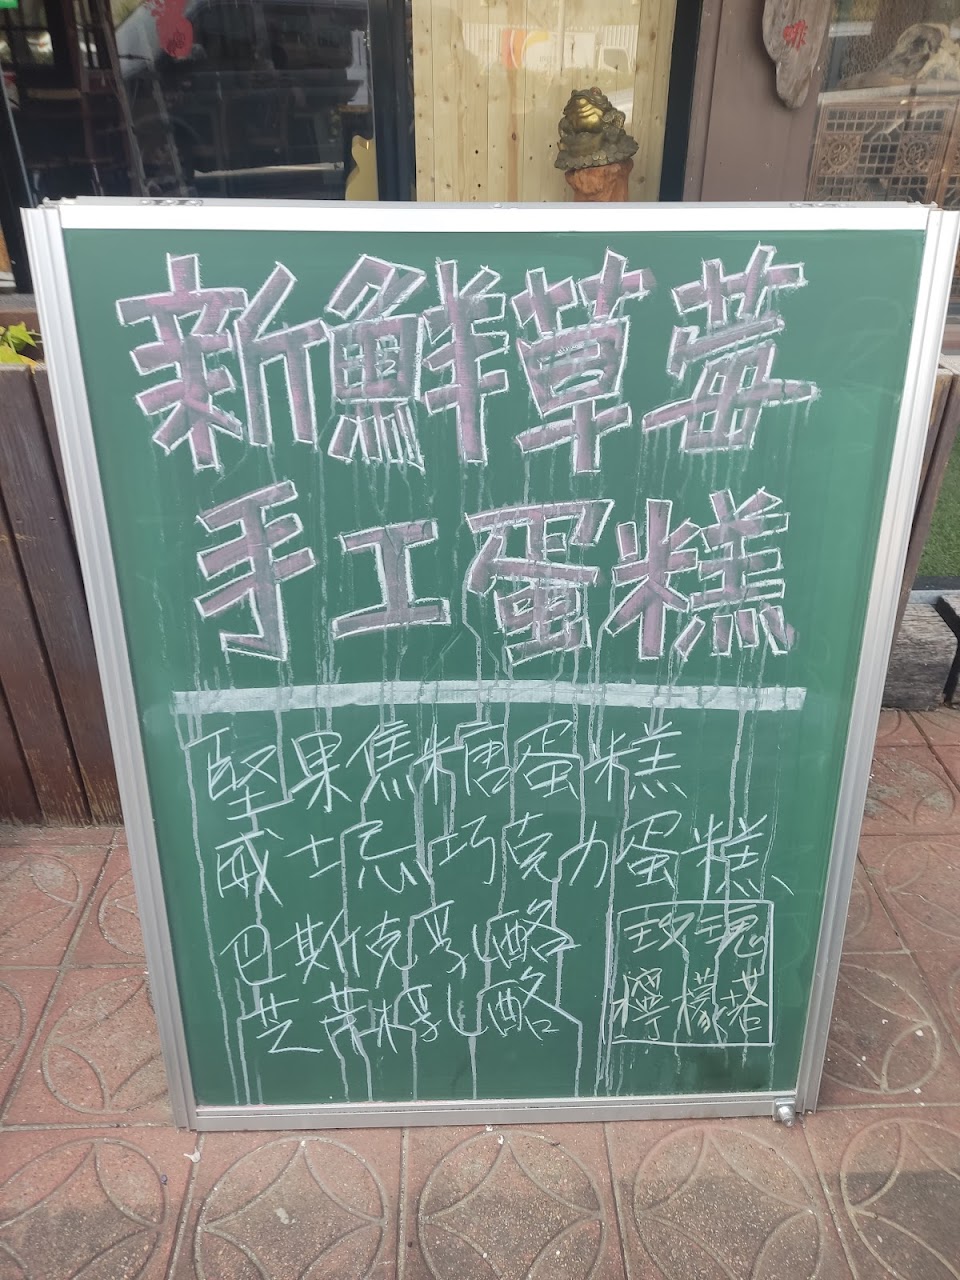 新鮮草莓
手工蛋糕
堅果焦糖蛋糕
威士忌巧克力蛋糕
巴斯克乳酪
芝蔴乳酪
玫瑰
檸檬塔